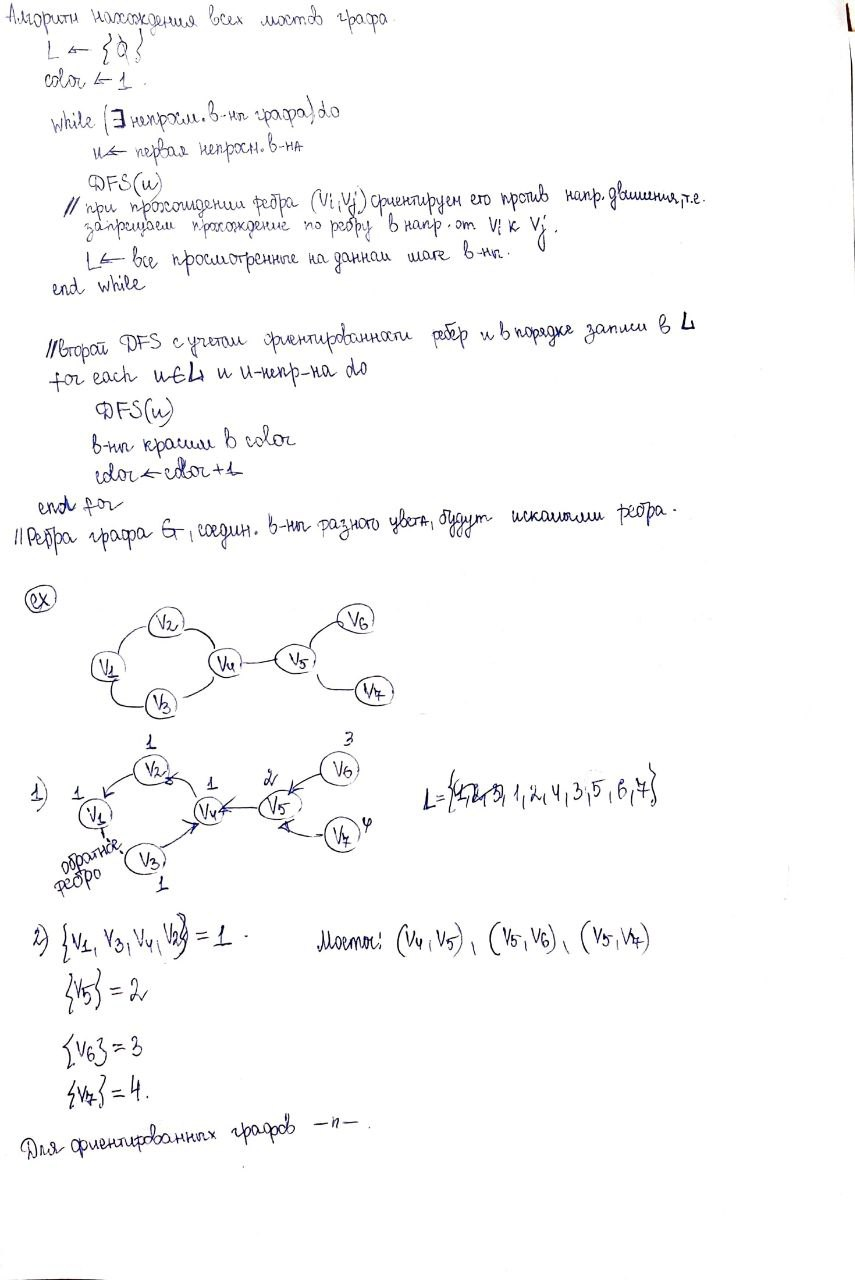 Алгоритм нахождения всех мостов графа.
L ← {Ø}
color ← 1.
while (∃ непросм. в-ны графа) do
u ← первая непросм. в-на
DFS(u)
// при прохождении ребра (Vi, Vj) ориентируем его против напр. движения, т.е.
запрещаем прохождение по ребру в напр. от Vi к Vj.
L ← все просмотренные на данном шаге в-ны.
end while
// второй DFS с учетом ориентированности ребер и в порядке записи в L
for each u∈L и u-непр-на do
DFS(u)
в-ны красим в color
color ← color + 1
end for
// Ребра графа G, соедин. в-ны разного цвета, будут искомыми ребра.
ex
V2 V6
V1 V4 V5
V3 V7
1 3
1) 1 V2 1 2 V6
V1 V4 V5 L={1, 2, 4, 3, 5, 6, 7}
обратное V3 V7 4
ребро 1
2) {V1, V3, V4, V2} = 1. Мосты: (V4, V5), (V5, V6), (V5, V7)
{V5} = 2
{V6} = 3
{V7} = 4.
Для ориентированных графов —"—.